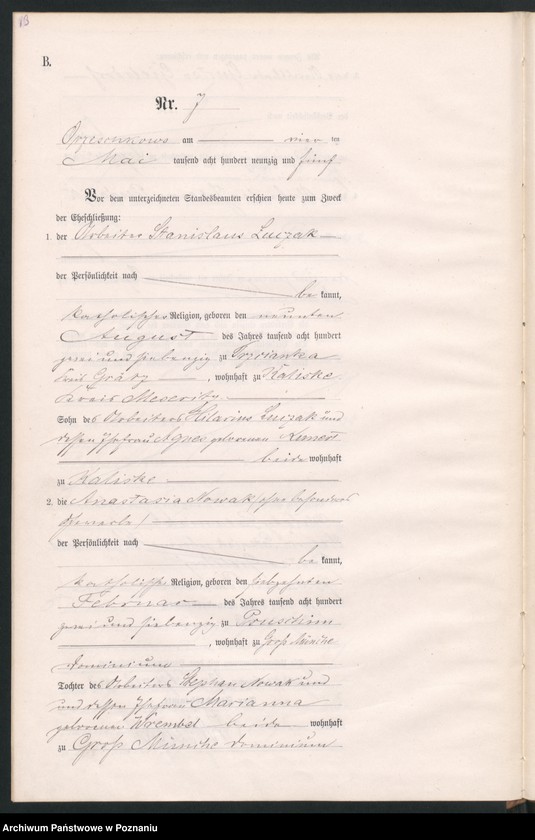 B.
Nr. 7
am vier ten
Mai tausend acht hundert neunzig und fünf
Vor dem unterzeichneten Standesbeamten erschien heute zum Zweck
der Eheschließung:
1. der Arbeiter Stanislaus Luczak
der Persönlichkeit nach
be kannt,
katholischer Religion, geboren den neunten
August des Jahres tausend acht hundert
zwei und siebenzig zu
Kreis Grätz, wohnhaft zu Kaliske
Kreis Meseritz
Sohn des Arbeiters Hilarius Luczak und
dessen Ehefrau Agnes geborenen
beide wohnhaft
zu Kaliske
2. die Anastasia Nowak ohne besonderen
der Persönlichkeit nach
be kannt,
katholische Religion, geboren den siebzehnten
Februar des Jahres tausend acht hundert
zwei und siebenzig zu
, wohnhaft zu Groß Münche
Dominium
Tochter des Arbeiters Stephan Nowak und
und dessen Ehefrau Marianna
geborenen Wrembel beide wohnhaft
zu Groß Münche Dominium
Archiwum Państwowe w Poznaniu